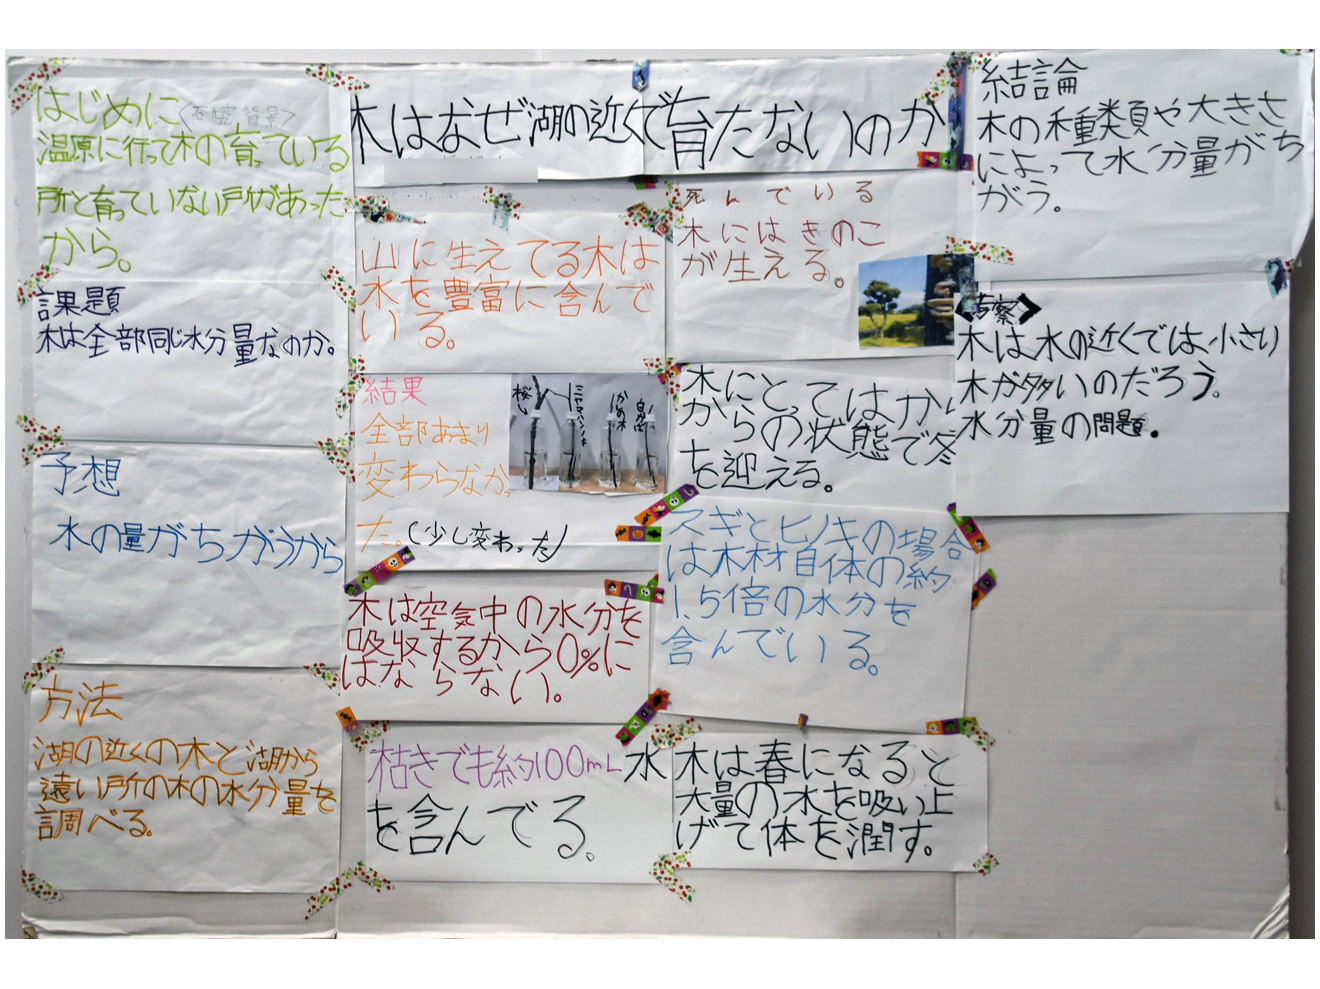 木はなぜ湖の近くで育たないのか
はじめに
温原に行って木の育っている
所と育っていない戸があった
から。
課題
木は全部同じ水分量なのか。
予想
水の量がちがうから
方法
湖の近くの木と湖から
遠い所の木の水分量を
調べる。
山に生えてる木は
水を豊富に含んで
いる。
結果
全部あまり
変わらなかっ
た。(少し変わった)
桜
ミヤマハンノキ
かめの木
白かば
木は空気中の水分を
吸収するから0%に
はならない。
枯きでも約100mL水
を含んでる。
死んでいる
木にはきのこ
が生える。
木にとってはかい
からの状態で冬
を迎える。
スギとヒノキの場合
は木材自体の約
1.5倍の水分を
含んでいる。
木は春になると
大量の水を吸い上
げて体を潤す。
結論
木の種類や大きさ
によって水分量がち
がう。
<考察>
木は水の近くでは小さい
木が多いのだろう。
水分量の問題。